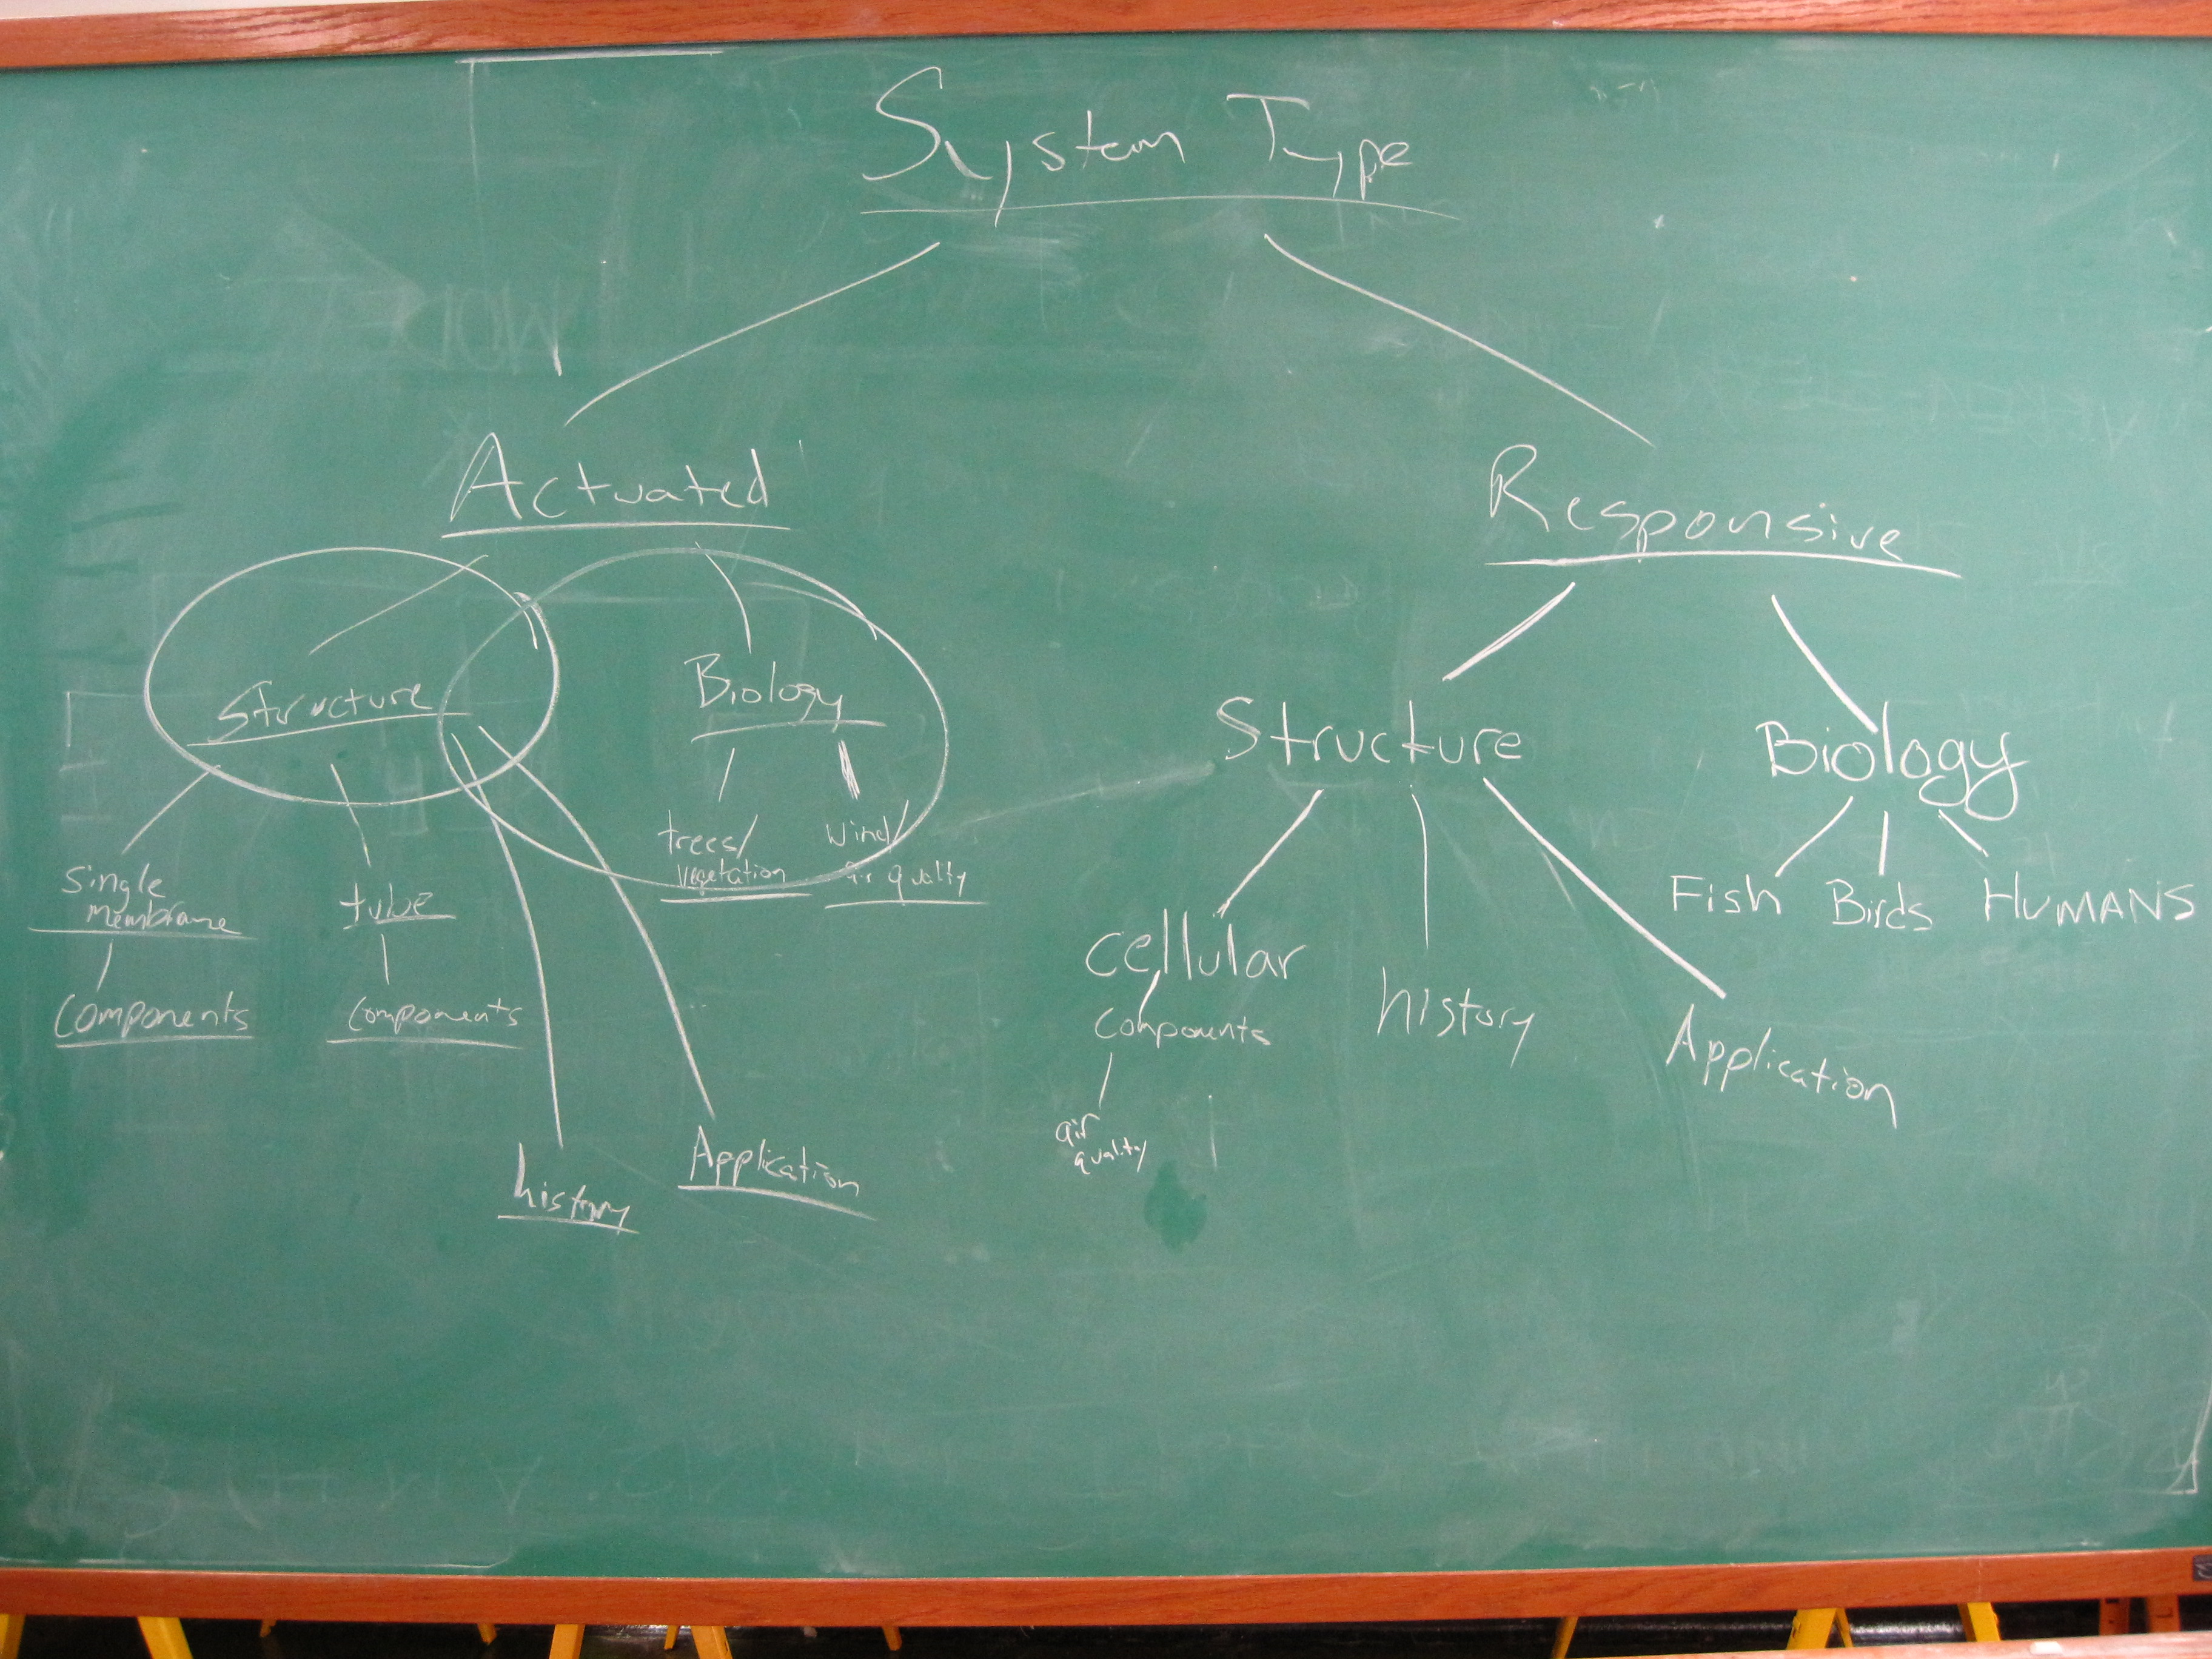 System Type
Actuated
Responsive
Structure
Biology
trees/
vegetation
wind/
air quality
single
membrane
components
tube
components
history
Application
Structure
Biology
cellular
components
air
quality
history
Application
Fish Birds HUMANS
MODEL